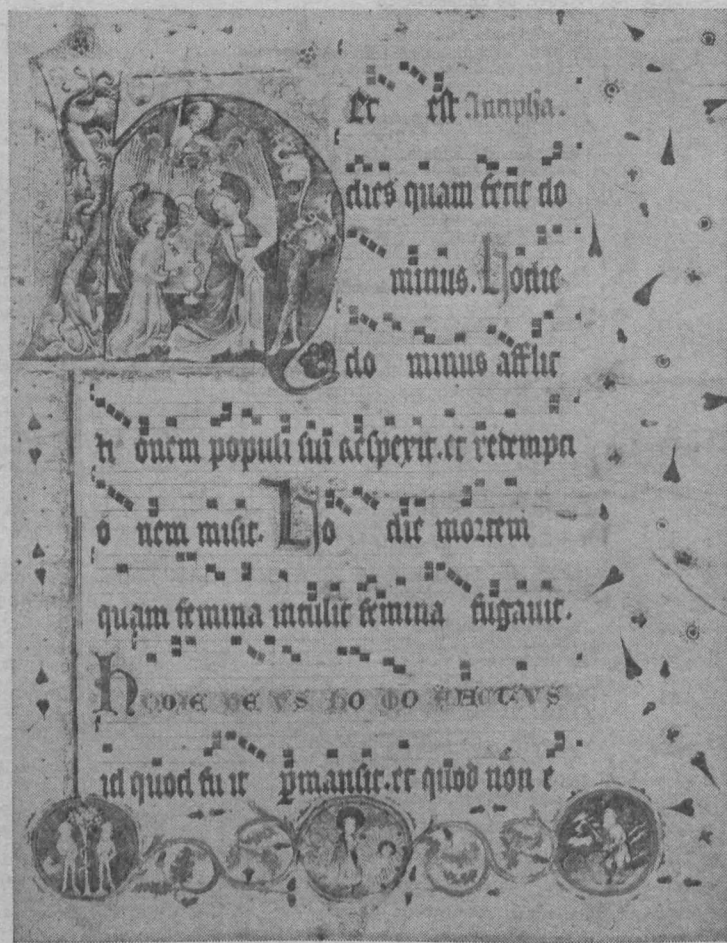 Ec est Antipha.
dies quam fecit do
minus. Hodie
do minus afflic
ti onem populi sui respexit. et redempti
o nem misit. Ho die mortem
quam femina intulit femina fugauit.
hODIE DEUS HOMO FACTUS
id quod fu it pmansit. et quod non e